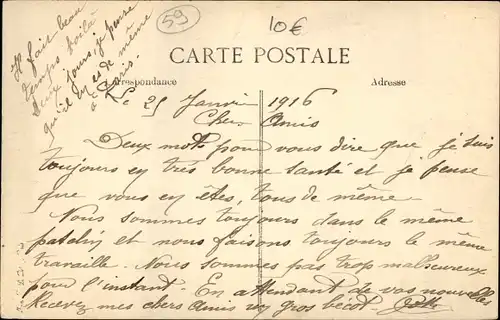 Il fait beau
temps voilà
Deux jours, je pense
qu'il en es de même
à Paris.
59
10€
CARTE POSTALE
Correspondance
Adresse
Le 25 Janvier 1916
Chers Amis
Deux mots pour vous dire que je suis
toujours en très bonne santé et je pense
que vous en êtes, tous de même.
Nous sommes toujours dans le même
patelin et nous faisons toujours le même
travaille. Nous sommes pas trop malheureux
pour l'instant. En attendant de vos nouvelles
Recevez mes chers Amis un gros bécot.